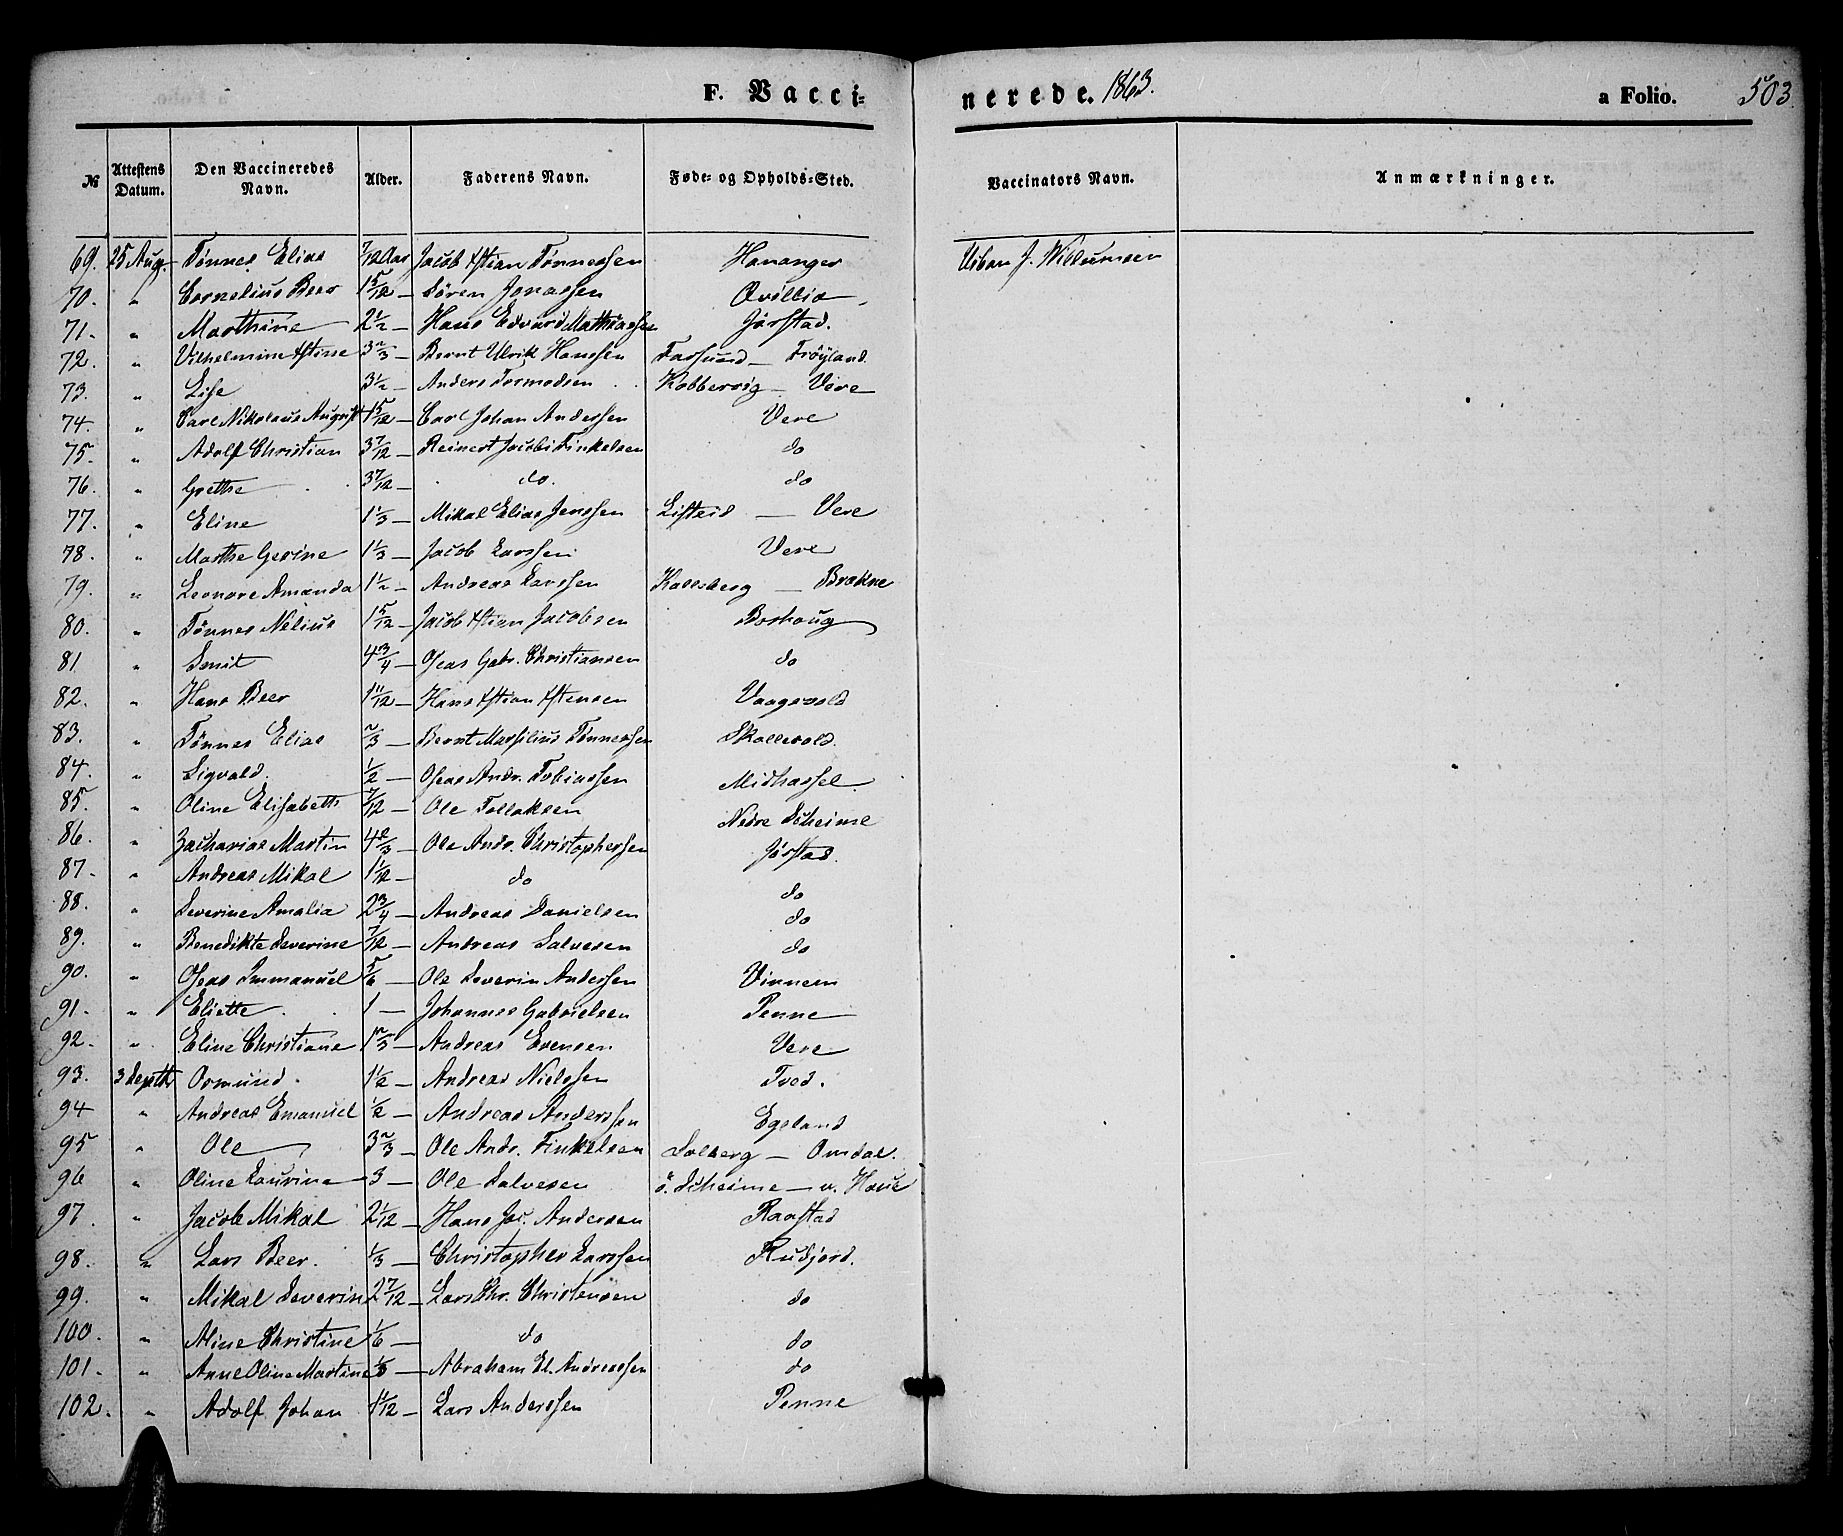 F. Vacci-
nerede. 1863.
a Folio. 503
№ Attestens Datum. Den Vaccineredes Navn. Alder. Faderens Navn. Føde- og Opholds-Sted. Vaccinators Navn. Anmærkninger.
69. 25 Aug. Tønnes Elias 7/12 Aar Jacob Xstian Tønnessen Hananger
70. " Cornelius Beer 1 5/12 — Søren Jonassen Qvillio
71. " Marthine 2 1/2 — Hans Edvard Mathiassen Jørstad.
72. " Vilhelmine Xstine 3 2/3 — Bernt Ulrik Hanssen Farsund — Frøyland.
73. " Lise 3 1/2 — Anders Tormodsen Kobbervig — Vere
74. " Carl Nikolaus August 1 5/12 — Carl Johan Anderssen Vere
75. " Adolf Christian 3 7/12 — Reinert Jacobi Finkelsen do
76. " Grethe 3 7/12 — do. do
77. " Eline 1 1/3 — Mikal Elias Jenssen Listeid — Vere
78. " Marthe Gerine 1 1/3 — Jacob Larssen Vere
79. " Leonore Amanda 1 1/2 — Andreas Larssen Kallsberg — Brekne
80. " Tønnes Nelius 1 5/12 — Jacob Xstian Jacobsen Borhoug
81 " Smit 4 3/4 — Oseas Gabr. Christiansen do
82. " Hans Beer 1 11/12 — Hans Xstian Xstensen Vaagsvold
83. " Tønnes Elias 2/3 — Bernt Marsilius Tønnessen Skollevold.
84. " Sigvald. 1/2 — Oseas Andr. Tobiassen Midhassel.
85. " Oline Elisabeth 7/12 — Ole Tollaksen Nedre Scheime
86. " Zacharias Martin 4 2/3 — Ole Andr. Christophersen Jørstad.
87. " Andreas Mikal 1 1/12 — do do
88. " Severine Amalia 2 3/4 — Andreas Danielsen do
89. " Benedikte Severine 7/12 — Andreas Salvesen do
90. " Oseas Immanuel 5/6 — Ole Severin Anderssen Vinnem
91. " Eliette. 1 — Johannes Gabrielsen Penne
92. " Eline Christiane 1 2/3 — Andreas Evensen Vere
93. 3 Septbr Ormund. 1 1/2 — Andreas Nielssen Tved.
94 " Andreas Emanuel 1/2 — Andreas Anderssen Egeland
95 " Ole 3 2/3 — Ole Andr. Finkelsen Solberg — Omdal.
96 " Oline Laurine 3 — Ole Salvesen ö. Scheime — v. Haue
97. " Jacob Mikal 2 1/12 — Hans Jac. Andersen Raastad
98. " Lars Beer. 1/3 — Christopher Larssen Rudjord.
99. " Mikal Severin 2 7/12 — Lars Chr. Christensen do
100. " Aline Christine 1/6 — do do
101. " Anne Oline Martine 1/3 — Abraham El. Andreassen do
102. " Adolf Johan 1 1/12 — Lars Anderssen Penne
Urban J. Willumsen